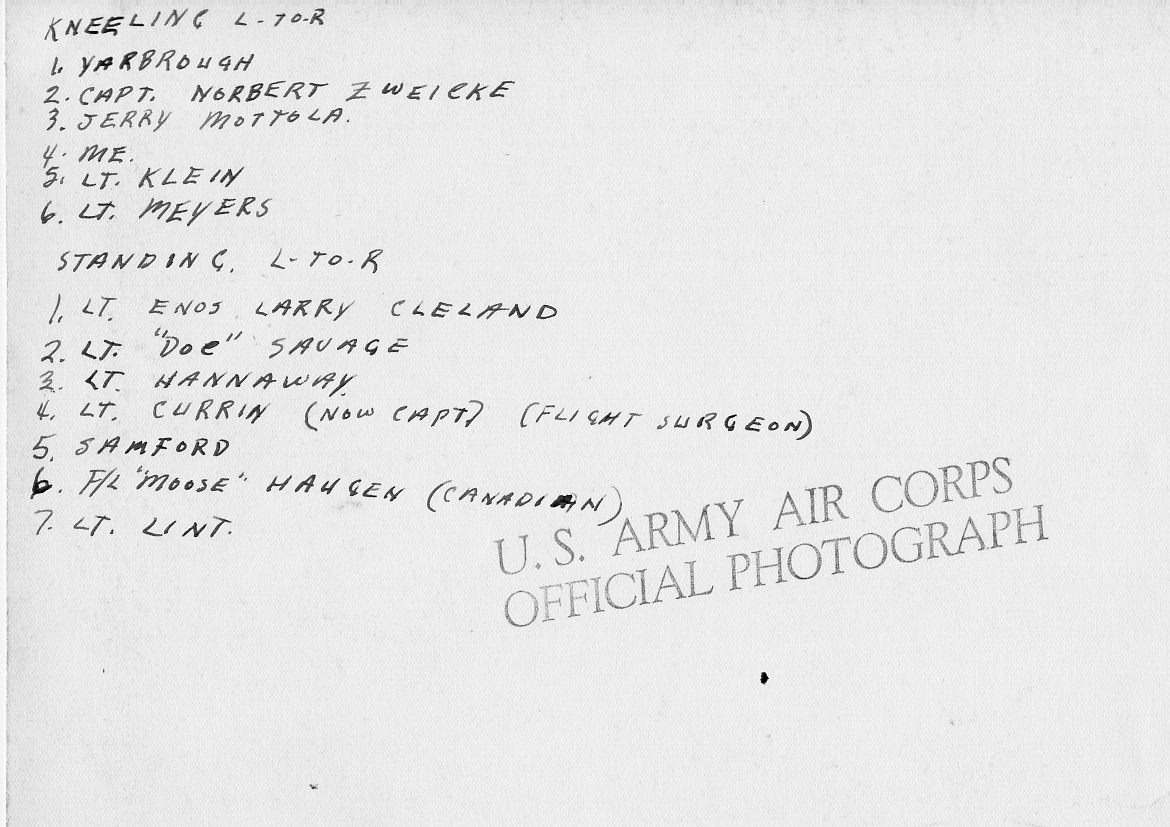 KNEELING L-TO-R
1. YARBROUGH
2. CAPT. NORBERT ZWEICKE
3. JERRY MOTTOLA.
4. ME.
5. LT. KLEIN
6. LT. MEYERS
STANDING, L-TO-R
1. LT. ENOS LARRY CLELAND
2. LT. "Doc" SAVAGE
3. LT. HANNAWAY.
4. LT. CURRIN (NOW CAPT) (FLIGHT SURGEON)
5. SAMFORD
6. F/L "MOOSE" HAUGEN (CANADIAN)
7. LT. LINT.
U.S. ARMY AIR CORPS
OFFICIAL PHOTOGRAPH